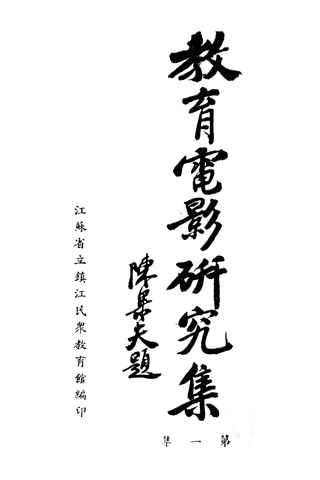 教育電影研究集
第一集
陳果夫題
江蘇省立鎮江民眾教育館編印